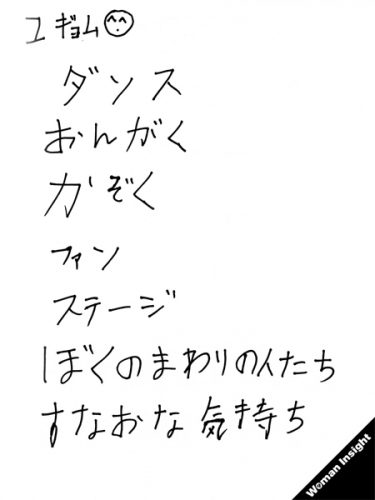 ユギョム
ダンス
おんがく
かぞく
ファン
ステージ
ぼくのまわりの人たち
すなおな気持ち
Woman Insight